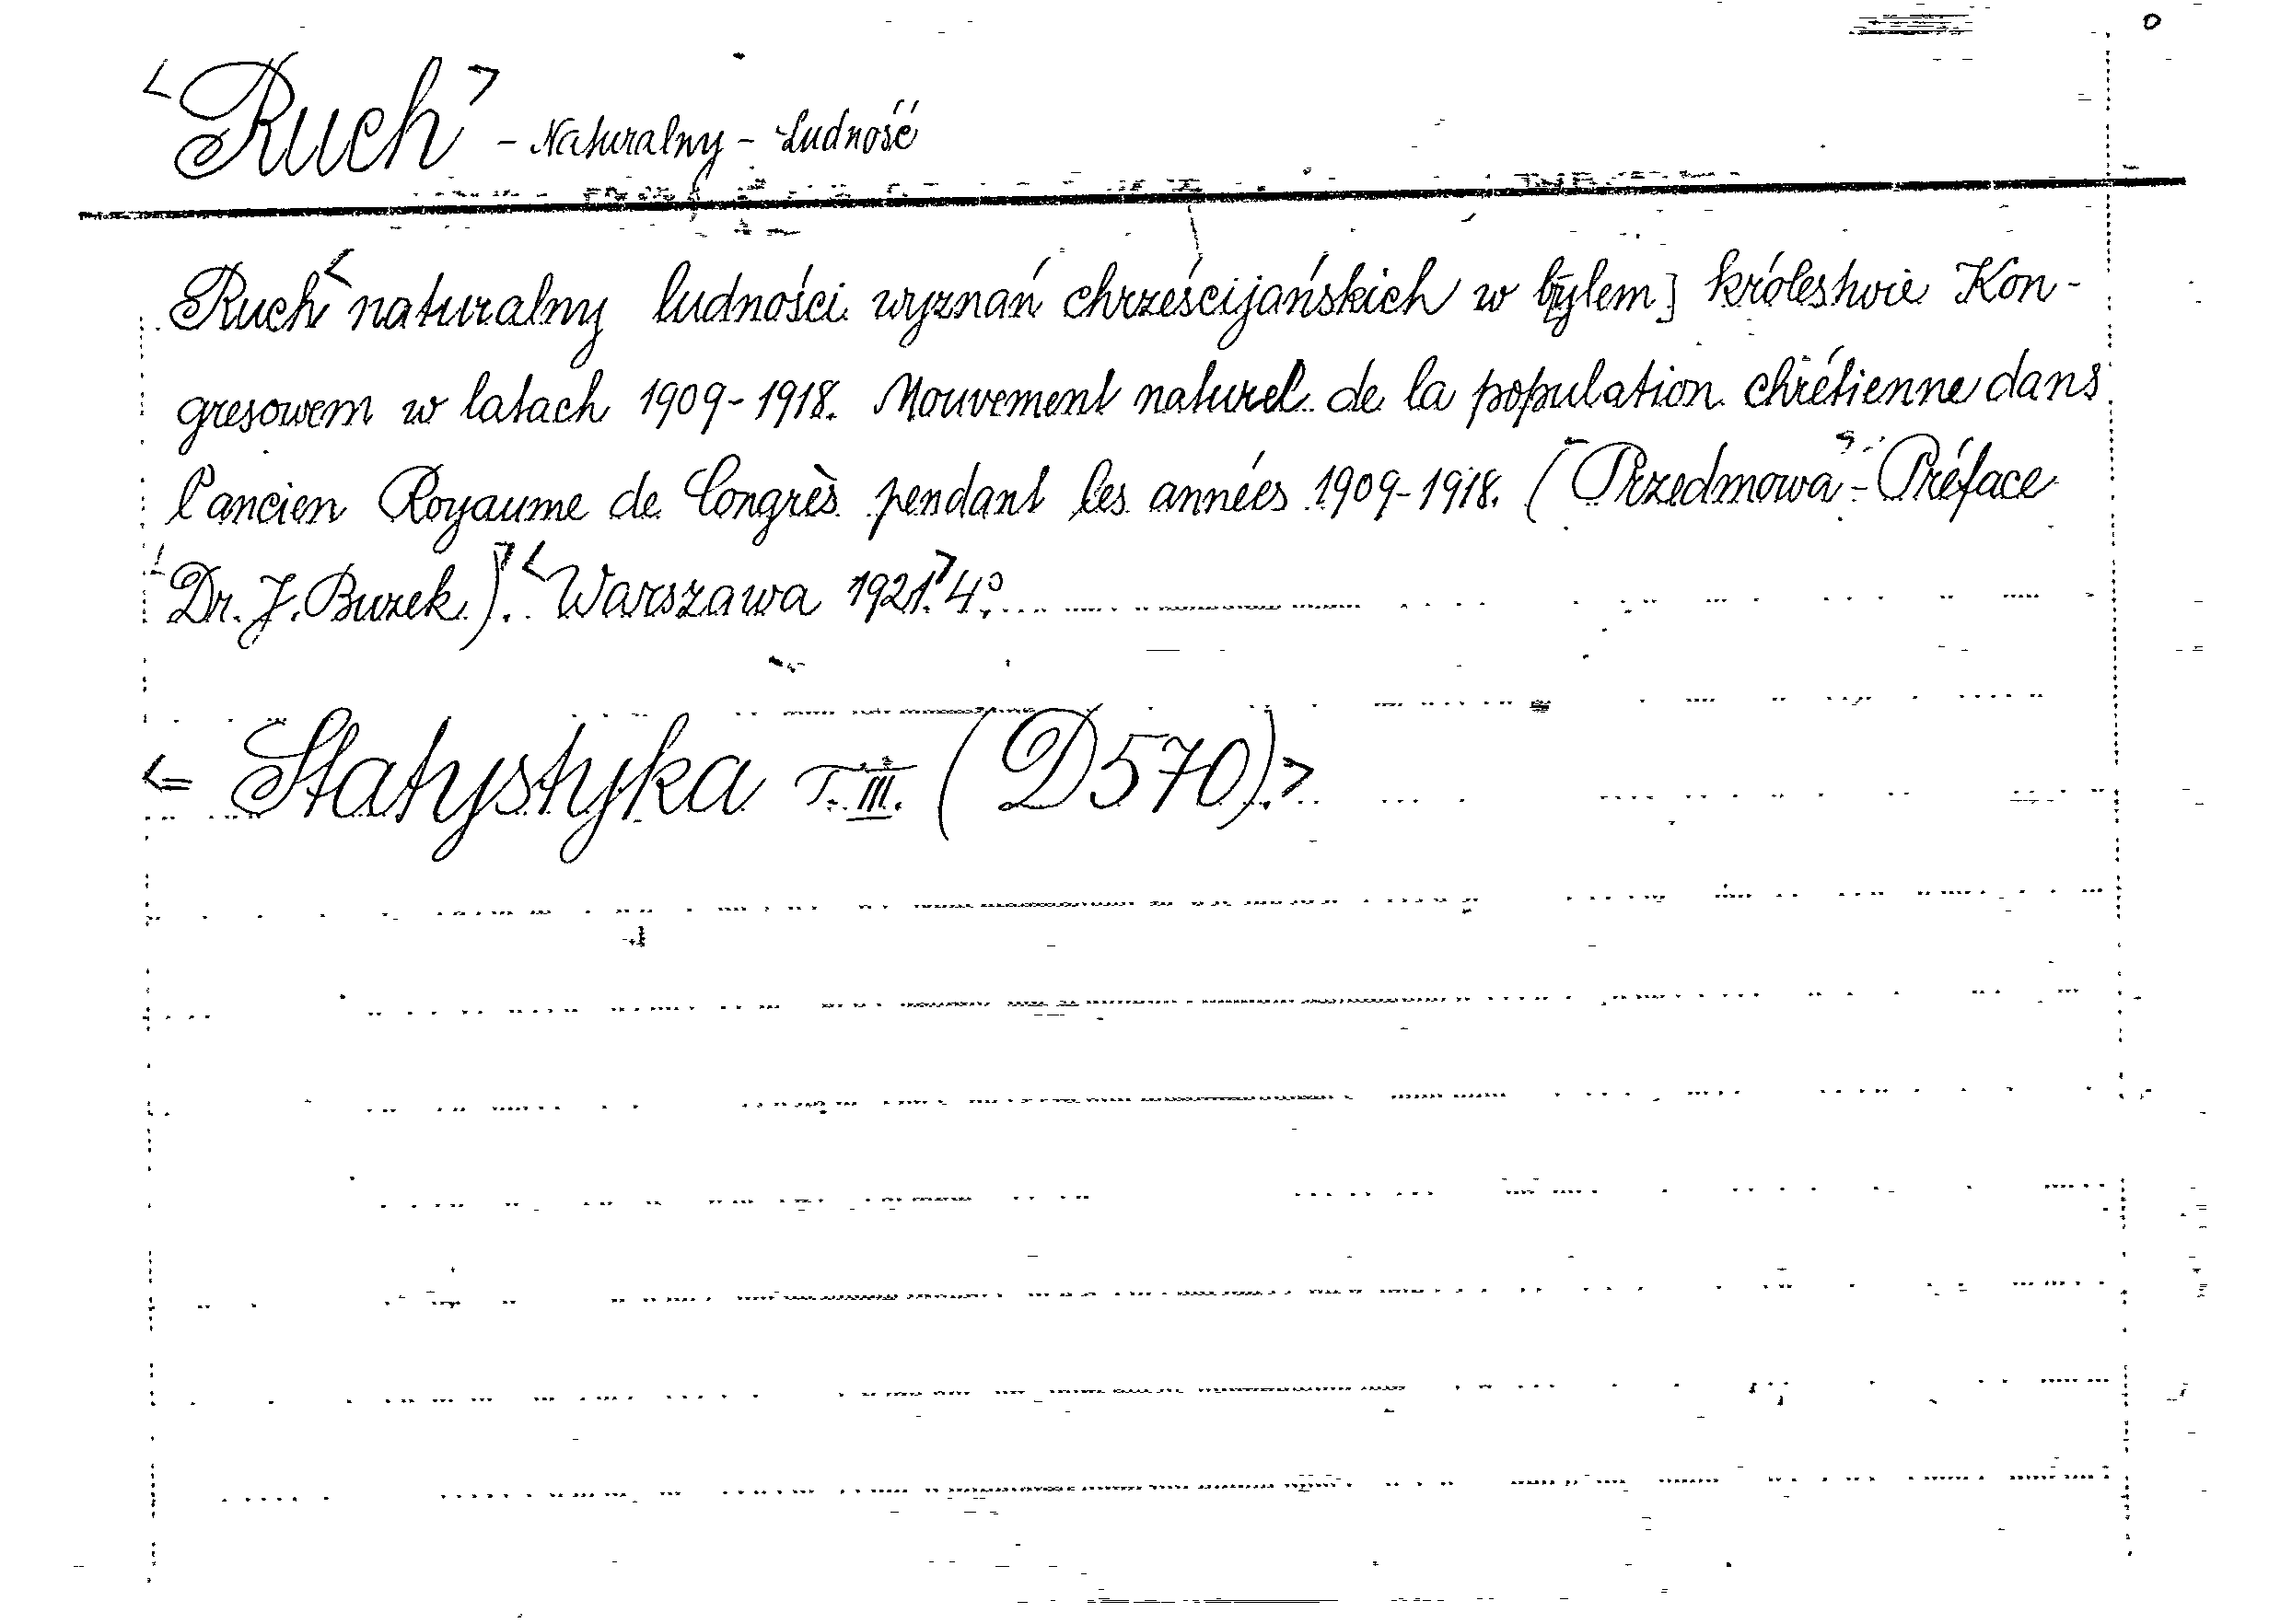 <Ruch> - Naturalny - Ludność
Ruch< naturalny ludności wyznań chrześcijańskich w b[yłem] królestwie Kon-
gresowem w latach 1909-1918. Mouvement naturel de la population chrétienne dans
l'ancien Royaume de Congrès pendant les années 1909-1918. (Przedmowa - Préface
Dr. J. Buzek.)> <Warszawa 1921.> 4º.
<= Statystyka T. III. (D570).>